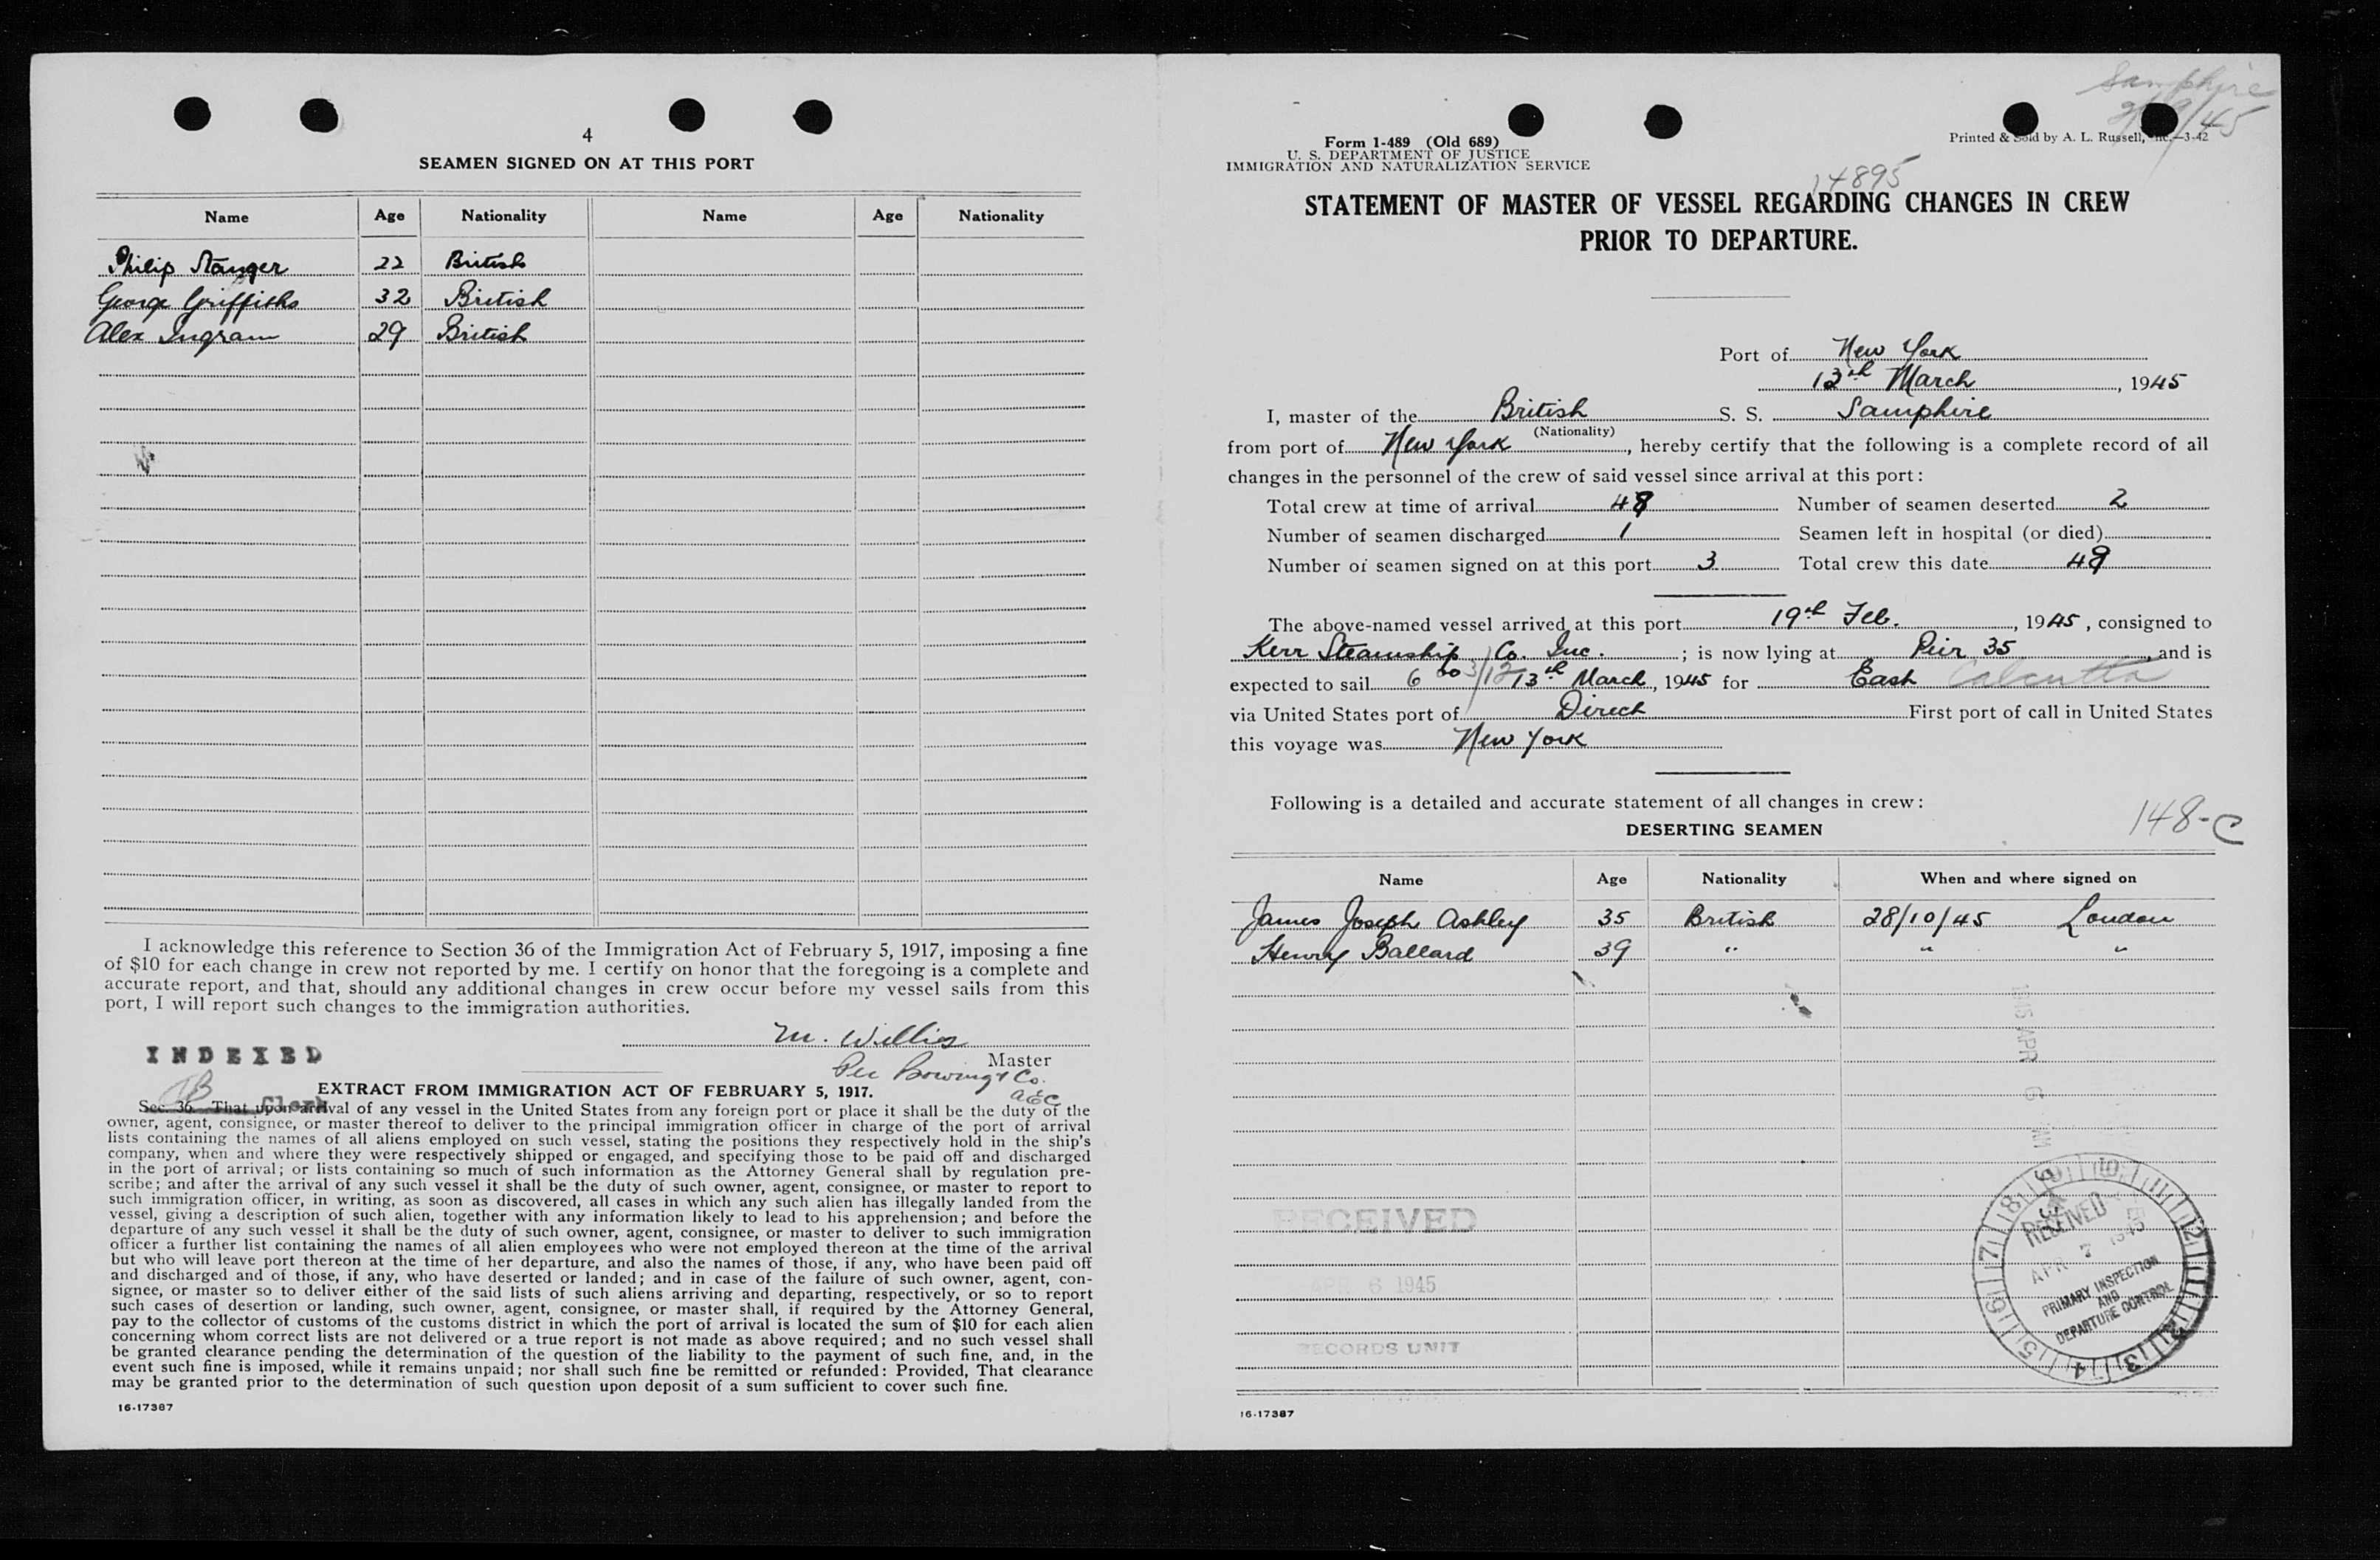 4
SEAMEN SIGNED ON AT THIS PORT
Name Age Nationality Name Age Nationality
Philip Stanger 22 British
George Griffiths 32 British
Alex Ingram 29 British
I acknowledge this reference to Section 36 of the Immigration Act of February 5, 1917, imposing a fine
of $10 for each change in crew not reported by me. I certify on honor that the foregoing is a complete and
accurate report, and that, should any additional changes in crew occur before my vessel sails from this
port, I will report such changes to the immigration authorities.
M. Willies
Master
Per Bowring & Co.
AEC
INDEXED
Clerk
EXTRACT FROM IMMIGRATION ACT OF FEBRUARY 5, 1917.
Sec. 36. That upon arrival of any vessel in the United States from any foreign port or place it shall be the duty of the
owner, agent, consignee, or master thereof to deliver to the principal immigration officer in charge of the port of arrival
lists containing the names of all aliens employed on such vessel, stating the positions they respectively hold in the ship's
company, when and where they were respectively shipped or engaged, and specifying those to be paid off and discharged
in the port of arrival; or lists containing so much of such information as the Attorney General shall by regulation pre-
scribe; and after the arrival of any such vessel it shall be the duty of such owner, agent, consignee, or master to report to
such immigration officer, in writing, as soon as discovered, all cases in which any such alien has illegally landed from the
vessel, giving a description of such alien, together with any information likely to lead to his apprehension; and before the
departure of any such vessel it shall be the duty of such owner, agent, consignee, or master to deliver to such immigration
officer a further list containing the names of all alien employees who were not employed thereon at the time of the arrival
but who will leave port thereon at the time of her departure, and also the names of those, if any, who have been paid off
and discharged and of those, if any, who have deserted or landed; and in case of the failure of such owner, agent, con-
signee, or master so to deliver either of the said lists of such aliens arriving and departing, respectively, or so to report
such cases of desertion or landing, such owner, agent, consignee, or master shall, if required by the Attorney General,
pay to the collector of customs of the customs district in which the port of arrival is located the sum of $10 for each alien
concerning whom correct lists are not delivered or a true report is not made as above required; and no such vessel shall
be granted clearance pending the determination of the question of the liability to the payment of such fine, and, in the
event such fine is imposed, while it remains unpaid; nor shall such fine be remitted or refunded: Provided, That clearance
may be granted prior to the determination of such question upon deposit of a sum sufficient to cover such fine.
16-17387
Samphire
Form 1-489 (Old 689)
U. S. DEPARTMENT OF JUSTICE
IMMIGRATION AND NATURALIZATION SERVICE
Printed & Sold by A. L. Russell, Inc.—3-42
14895
STATEMENT OF MASTER OF VESSEL REGARDING CHANGES IN CREW
PRIOR TO DEPARTURE.
Port of New York
13th March, 1945
I, master of the British S. S. Samphire
(Nationality)
from port of New York, hereby certify that the following is a complete record of all
changes in the personnel of the crew of said vessel since arrival at this port:
Total crew at time of arrival 48 Number of seamen deserted 2
Number of seamen discharged 1 Seamen left in hospital (or died)
Number of seamen signed on at this port 3 Total crew this date 48
The above-named vessel arrived at this port 19th Feb., 1945, consigned to
Kerr Steamship Co. Inc.; is now lying at Pier 35, and is
expected to sail 6 00 3/13 13th March, 1945 for East Calcutta
via United States port of Direct First port of call in United States
this voyage was New York
Following is a detailed and accurate statement of all changes in crew:
148-C
DESERTING SEAMEN
Name Age Nationality When and where signed on
James Joseph Ashley 35 British 28/10/45 London
Henry Ballard 39 " " "
1945 APR 6
RECEIVED
APR 6 1945
RECORDS UNIT
RECEIVED
APR 7 1945
PRIMARY INSPECTION
AND
DEPARTURE CONTROL
16-17387